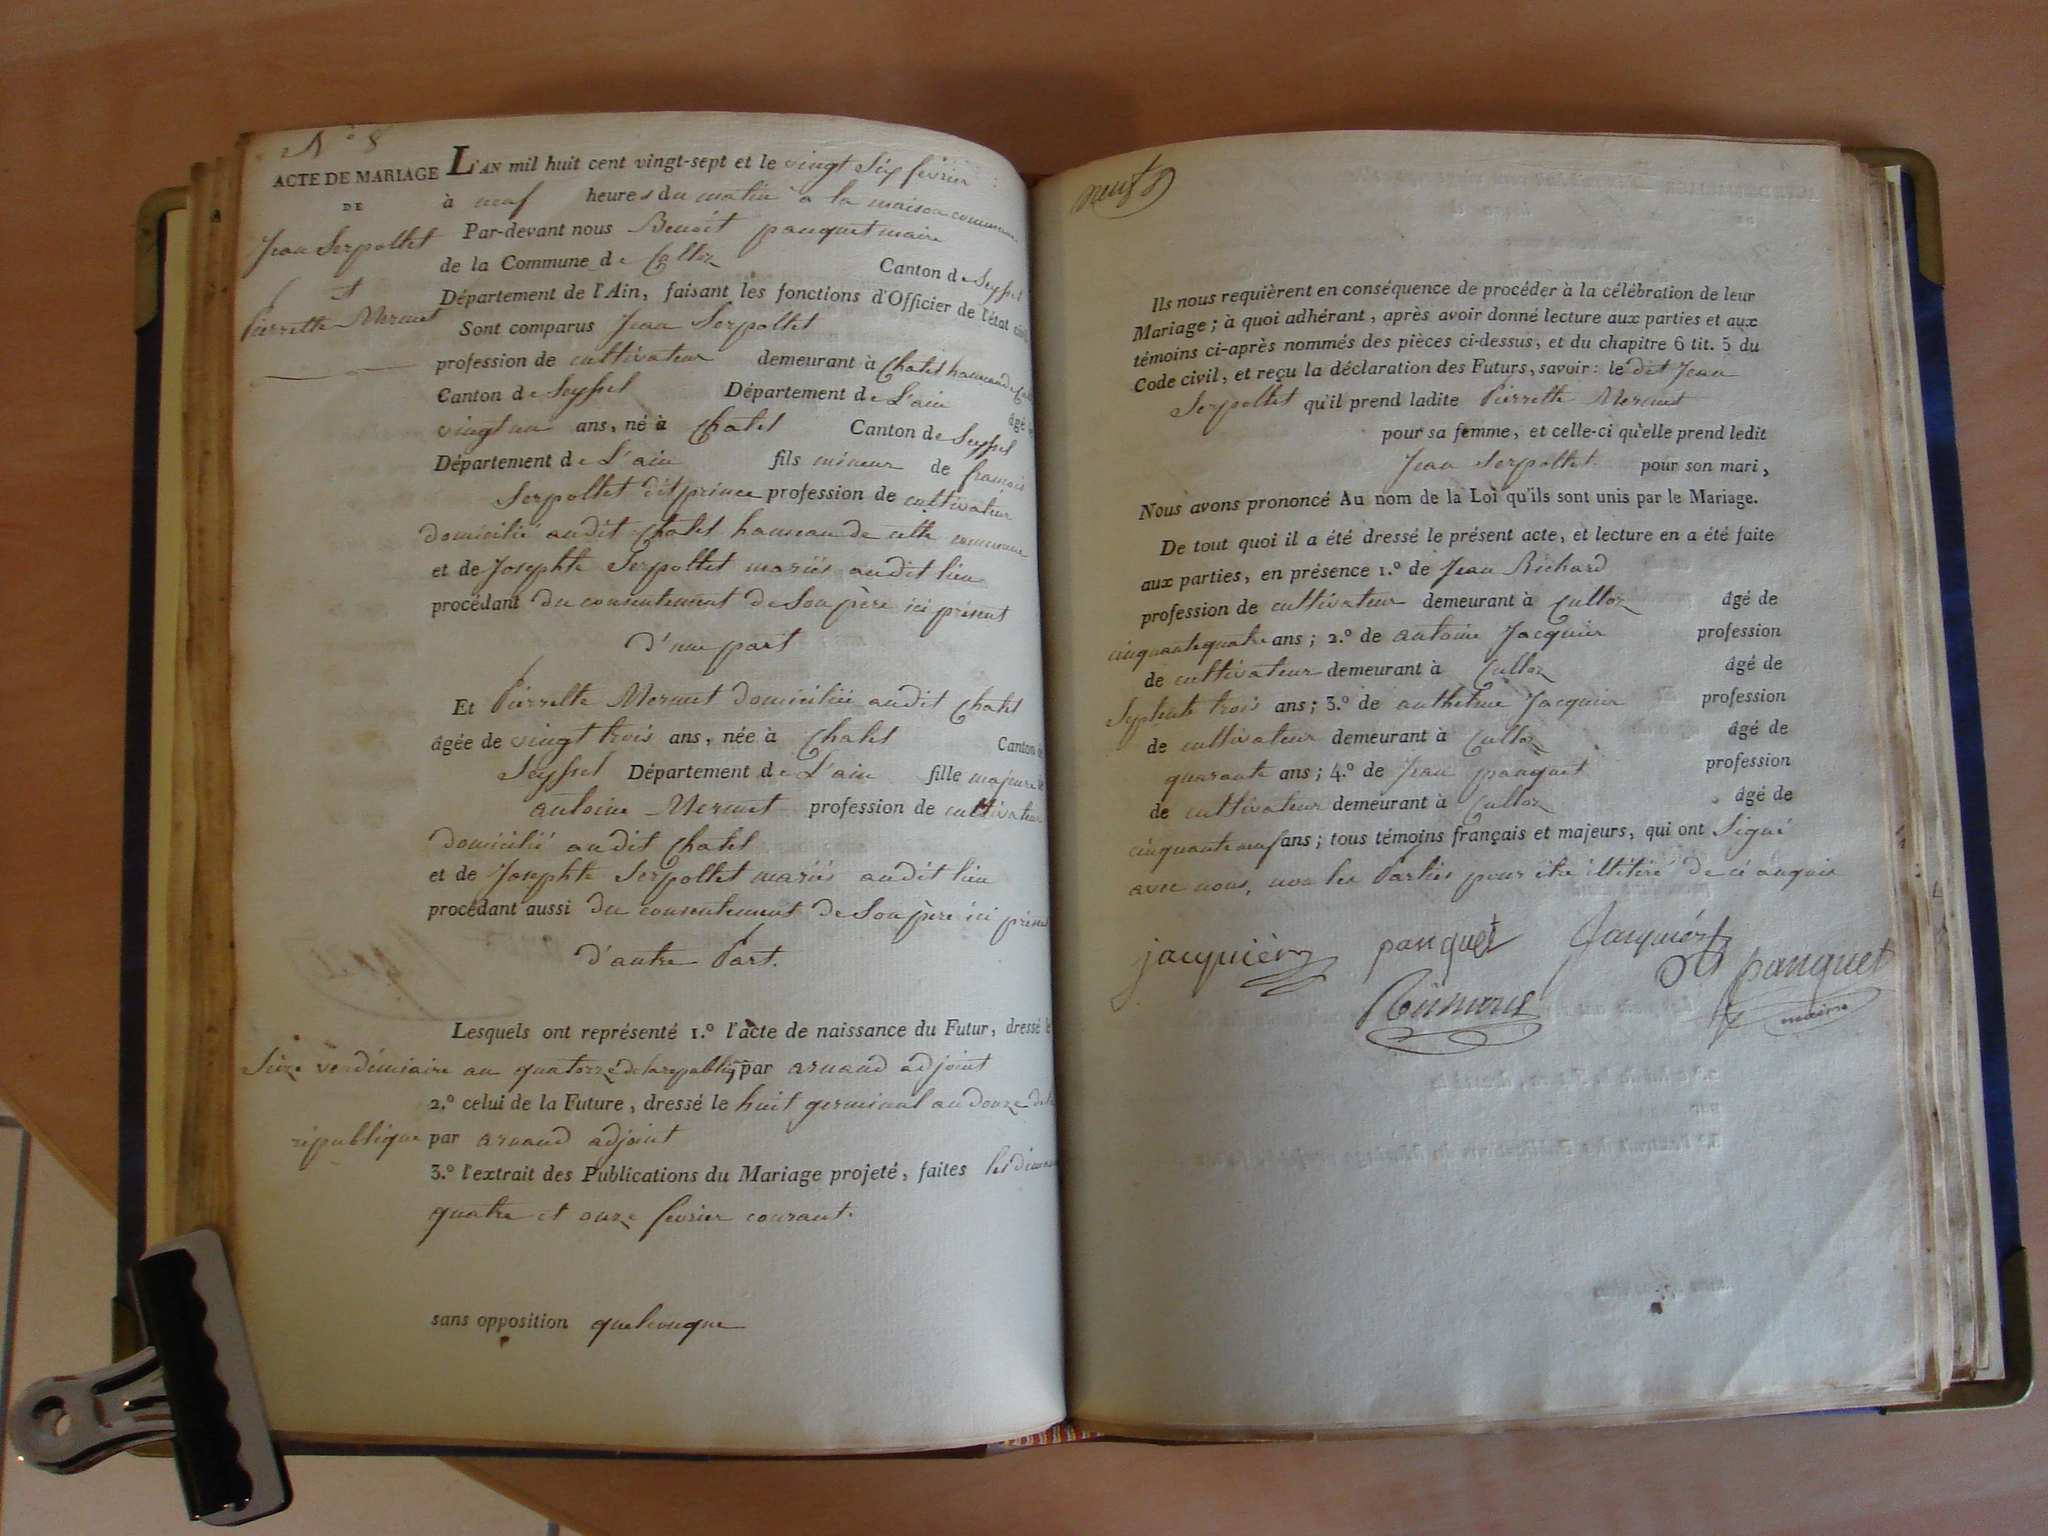 N° 8
ACTE DE MARIAGE
DE
Jean Serpollet
et
Pierrette Mermet
L'AN mil huit cent vingt-sept et le vingt Six février
à neuf heures du matin à la maison commune
Par-devant nous Benoit panquet maire
de la Commune de Culloz Canton de Seyssel
Département de l'Ain, faisant les fonctions d'Officier de l'état civil
Sont comparus Jean Serpollet
profession de cultivateur demeurant à Chatel hameau de
Canton de Seyssel Département de L'ain âgé de
vingt un ans, né à Chatel Canton de Seyssel
Département de L'ain fils mineur de francois
Serpollet dit prince profession de cultivateur
domicilié audit Chatel hameau de cette commune
et de Josephte Serpollet mariés audit lieu
procédant du consentement de Son père ici présent
d'une part
Et Pierrette Mermet domiciliée audit Chatel
âgée de vingt trois ans, née à Chatel Canton de
Seyssel Département de L'ain fille majeure de
antoine Mermet profession de cultivateur
domicilié audit Chatel
et de Josephte Serpollet mariés audit lieu
procédant aussi du consentement de Son père ici présent
d'autre Part.
Lesquels ont représenté 1.° l'acte de naissance du Futur, dressé le
Seize vendémiaire an quatorze de la republiq par arnaud adjoint
2.° celui de la Future, dressé le huit germinal an douze de la
république par arnaud adjoint
3.° l'extrait des Publications du Mariage projeté, faites les
quatre et onze février courant.
sans opposition quelconque
neuf
Ils nous requièrent en conséquence de procéder à la célébration de leur
Mariage ; à quoi adhérant, après avoir donné lecture aux parties et aux
témoins ci-après nommés des pièces ci-dessus, et du chapitre 6 tit. 5 du
Code civil, et reçu la déclaration des Futurs, savoir : le dit Jean
Serpollet qu'il prend ladite Pierrette Mermet
pour sa femme, et celle-ci qu'elle prend ledit
Jean Serpollet pour son mari,
Nous avons prononcé Au nom de la Loi qu'ils sont unis par le Mariage.
De tout quoi il a été dressé le présent acte, et lecture en a été faite
aux parties, en présence 1.° de Jean Richard
profession de cultivateur demeurant à Culloz âgé de
cinquante quatre ans ; 2.° de antoine Jacquier profession
de cultivateur demeurant à Culloz âgé de
Septente trois ans ; 3.° de anthelme Jacquier profession
de cultivateur demeurant à Culloz âgé de
quarante ans ; 4.° de Jean panquet profession
de cultivateur demeurant à Culloz âgé de
cinquante neuf ans ; tous témoins français et majeurs, qui ont Signé
avec nous, non les Parties pour être illitéré de ce enquis
jacquier panquet Jacquier panquet
maire